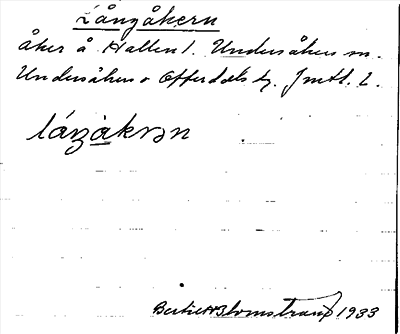 Långåkern
åker å Hallen 1. Undersåkers sn.
Undersåkers o Offerdals tg. Jmtl. l.
låŋåkrən
Bertil Blomstrand 1933